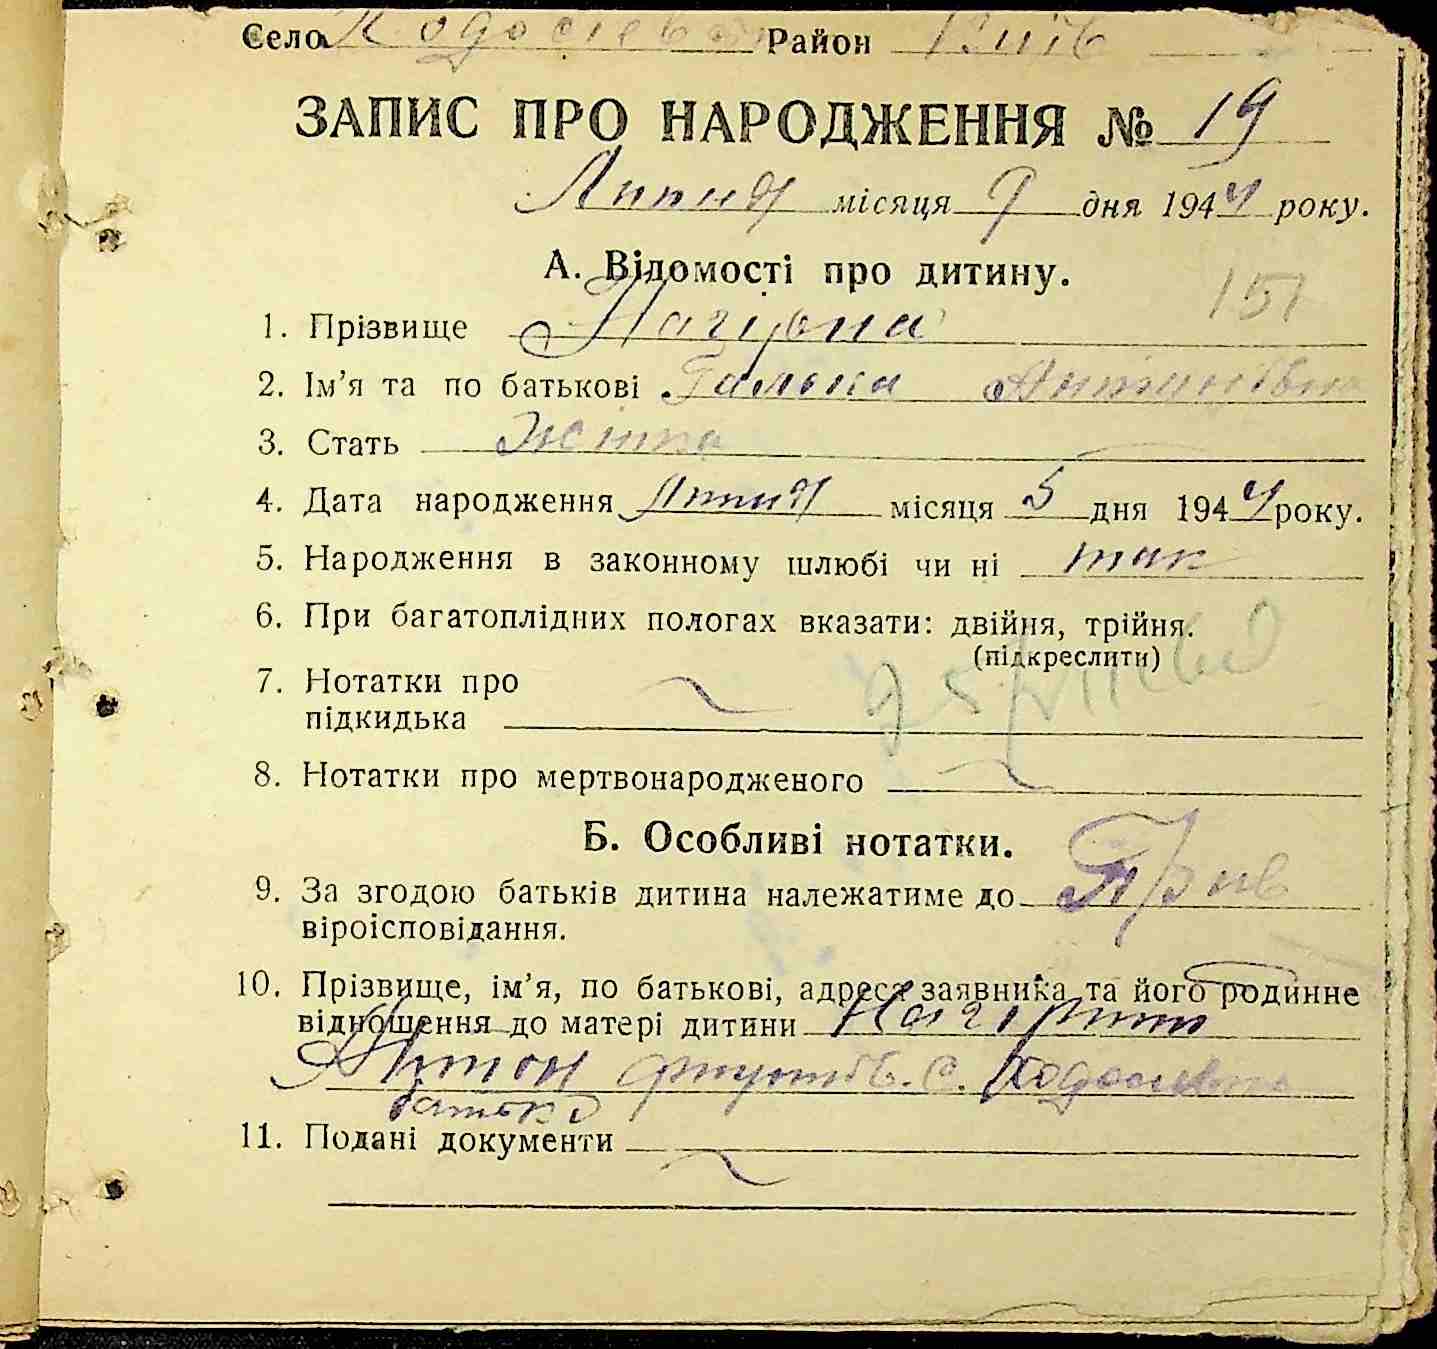 Село Ходосієвка Район Київ
ЗАПИС ПРО НАРОДЖЕННЯ № 19
Липня місяця 9 дня 1944 року.
А. Відомості про дитину.
151
1. Прізвище Нагірна
2. Ім'я та по батькові Гальона Антонівна
3. Стать Жіноча
4. Дата народження Липня місяця 5 дня 1944 року.
5. Народження в законному шлюбі чи ні так
6. При багатоплідних пологах вказати: двійня, трійня.
(підкреслити)
7. Нотатки про
підкидька
8. Нотатки про мертвонародженого
Б. Особливі нотатки.
9. За згодою батьків дитина належатиме до
віроісповідання.
10. Прізвище, ім'я, по батькові, адреса заявника та його родинне
відношення до матері дитини Нагірний
Антон с. Ходосієвка
батько
11. Подані документи